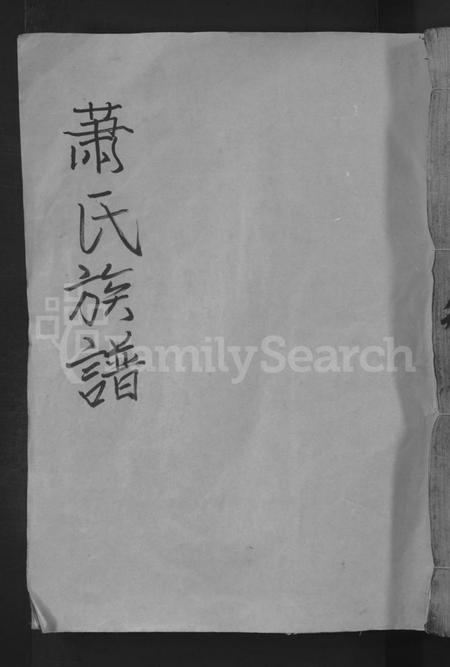 蕭氏族譜
FamilySearch